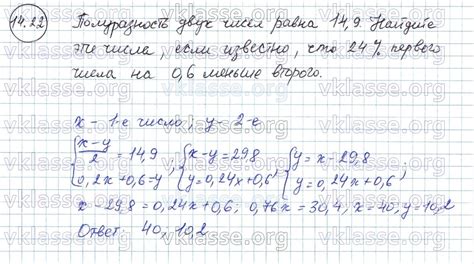 14.22 Полуразность двух чисел равна 14,9. Найдите
эти числа, если известно, что 24% первого
числа на 0,6 меньше второго.
x - 1-е число; y - 2-е
{ (x-y)/2 = 14,9 { x-y=29,8 { y = x - 29,8
{ 0,2x+0,6=y ; { y=0,24x+0,6 ; { y = 0,24x+0,6 .
x - 29,8 = 0,24x + 0,6, 0,76x = 30,4, x = 40, y = 10,2
Ответ 40, 10,2
vklasse.org vklasse.org
vklasse.org vklasse.org
vklasse.org vklasse.org
vklasse.org vklasse.org